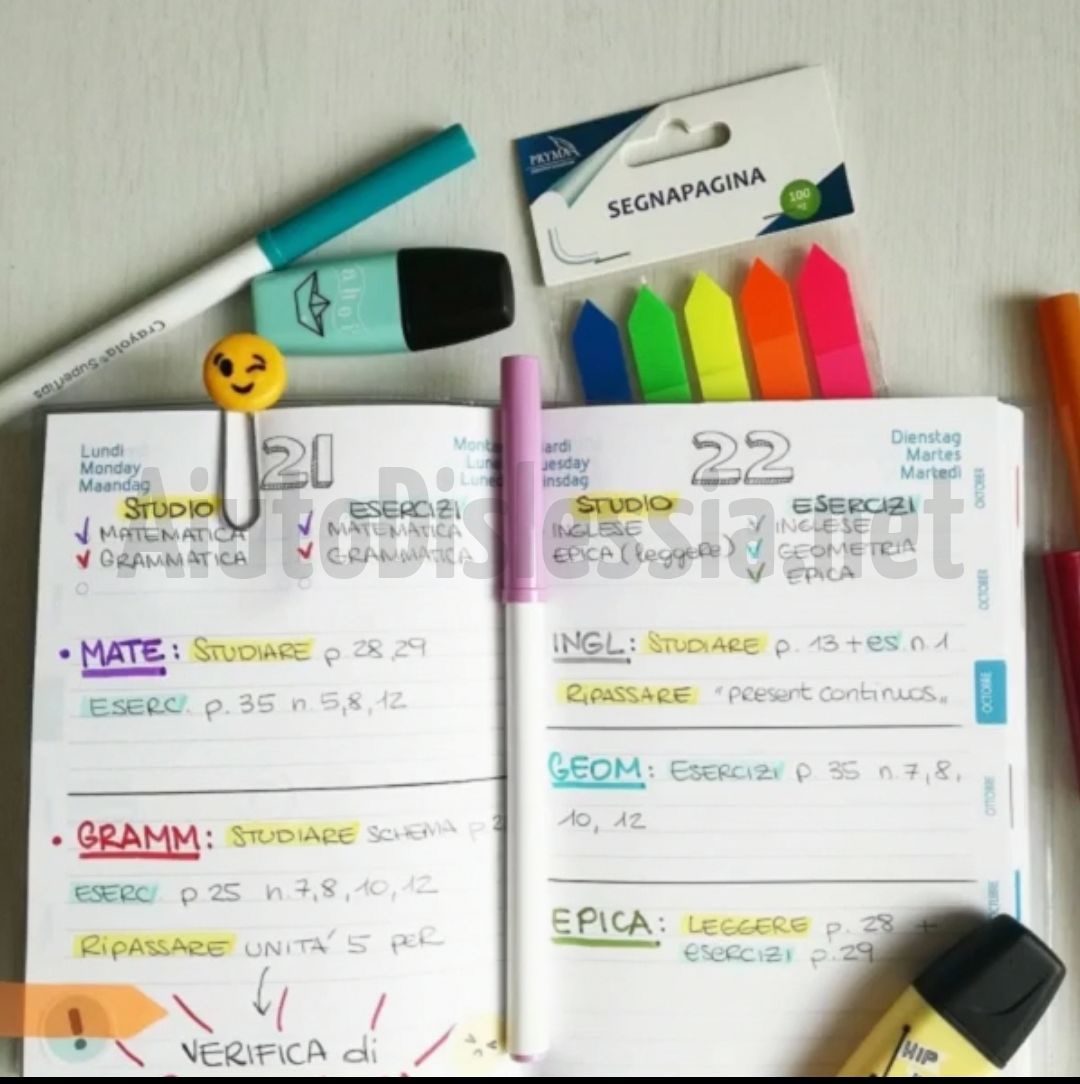 PRYMA
SEGNAPAGINA
100
ahoi
Crayola® Supertips
Lundi
Monday
Maandag
21
STUDIO
MATEMATICA
GRAMMATICA
ESERCIZI
MATEMATICA
GRAMMATICA
• MATE: STUDIARE p. 28,29
ESERC. p. 35 n. 5,8,12
• GRAMM: STUDIARE SCHEMA p. 2
ESERC. p 25 n. 7,8,10,12
RIPASSARE UNITA' 5 PER
!
VERIFICA di
22
Dienstag
Martes
Martedì
STUDIO
INGLESE
EPICA (leggere)
ESERCIZI
INGLESE
GEOMETRIA
EPICA
INGL: STUDIARE p. 13 + es. n. 1
RIPASSARE "present continuos„
GEOM: ESERCIZI p 35 n. 7,8,
10, 12
EPICA: LEGGERE p. 28 +
esercizi p. 29
OKTOBER
OCTOBER
OCTOBRE
OTTOBRE
HIP
AiutoDislessia.net